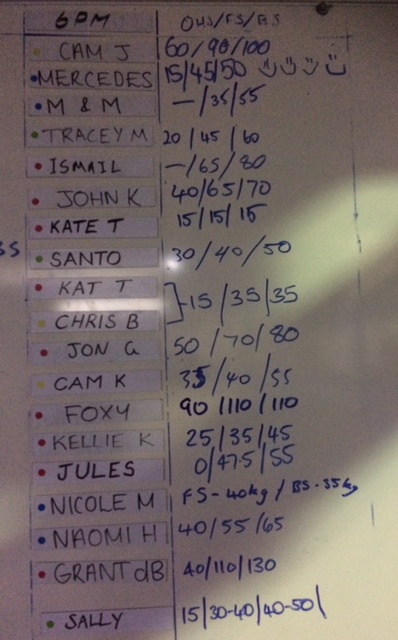 6PM OHS/FS/BS
CAM J 60/90/100
MERCEDES 15/45/50
M & M —/35/55
TRACEY M 20/45/60
ISMAIL —/65/80
JOHN K 40/65/70
KATE T 15/15/15
SANTO 30/40/50
KAT T
CHRIS B 15/35/35
JON G 50/70/80
CAM K 35/40/55
FOXY 90/110/110
KELLIE K 25/35/45
JULES 0/47.5/55
NICOLE M FS-40kg/BS-35kg
NAOMI H 40/55/65
GRANT dB 40/110/130
SALLY 15/30-40/40-50/